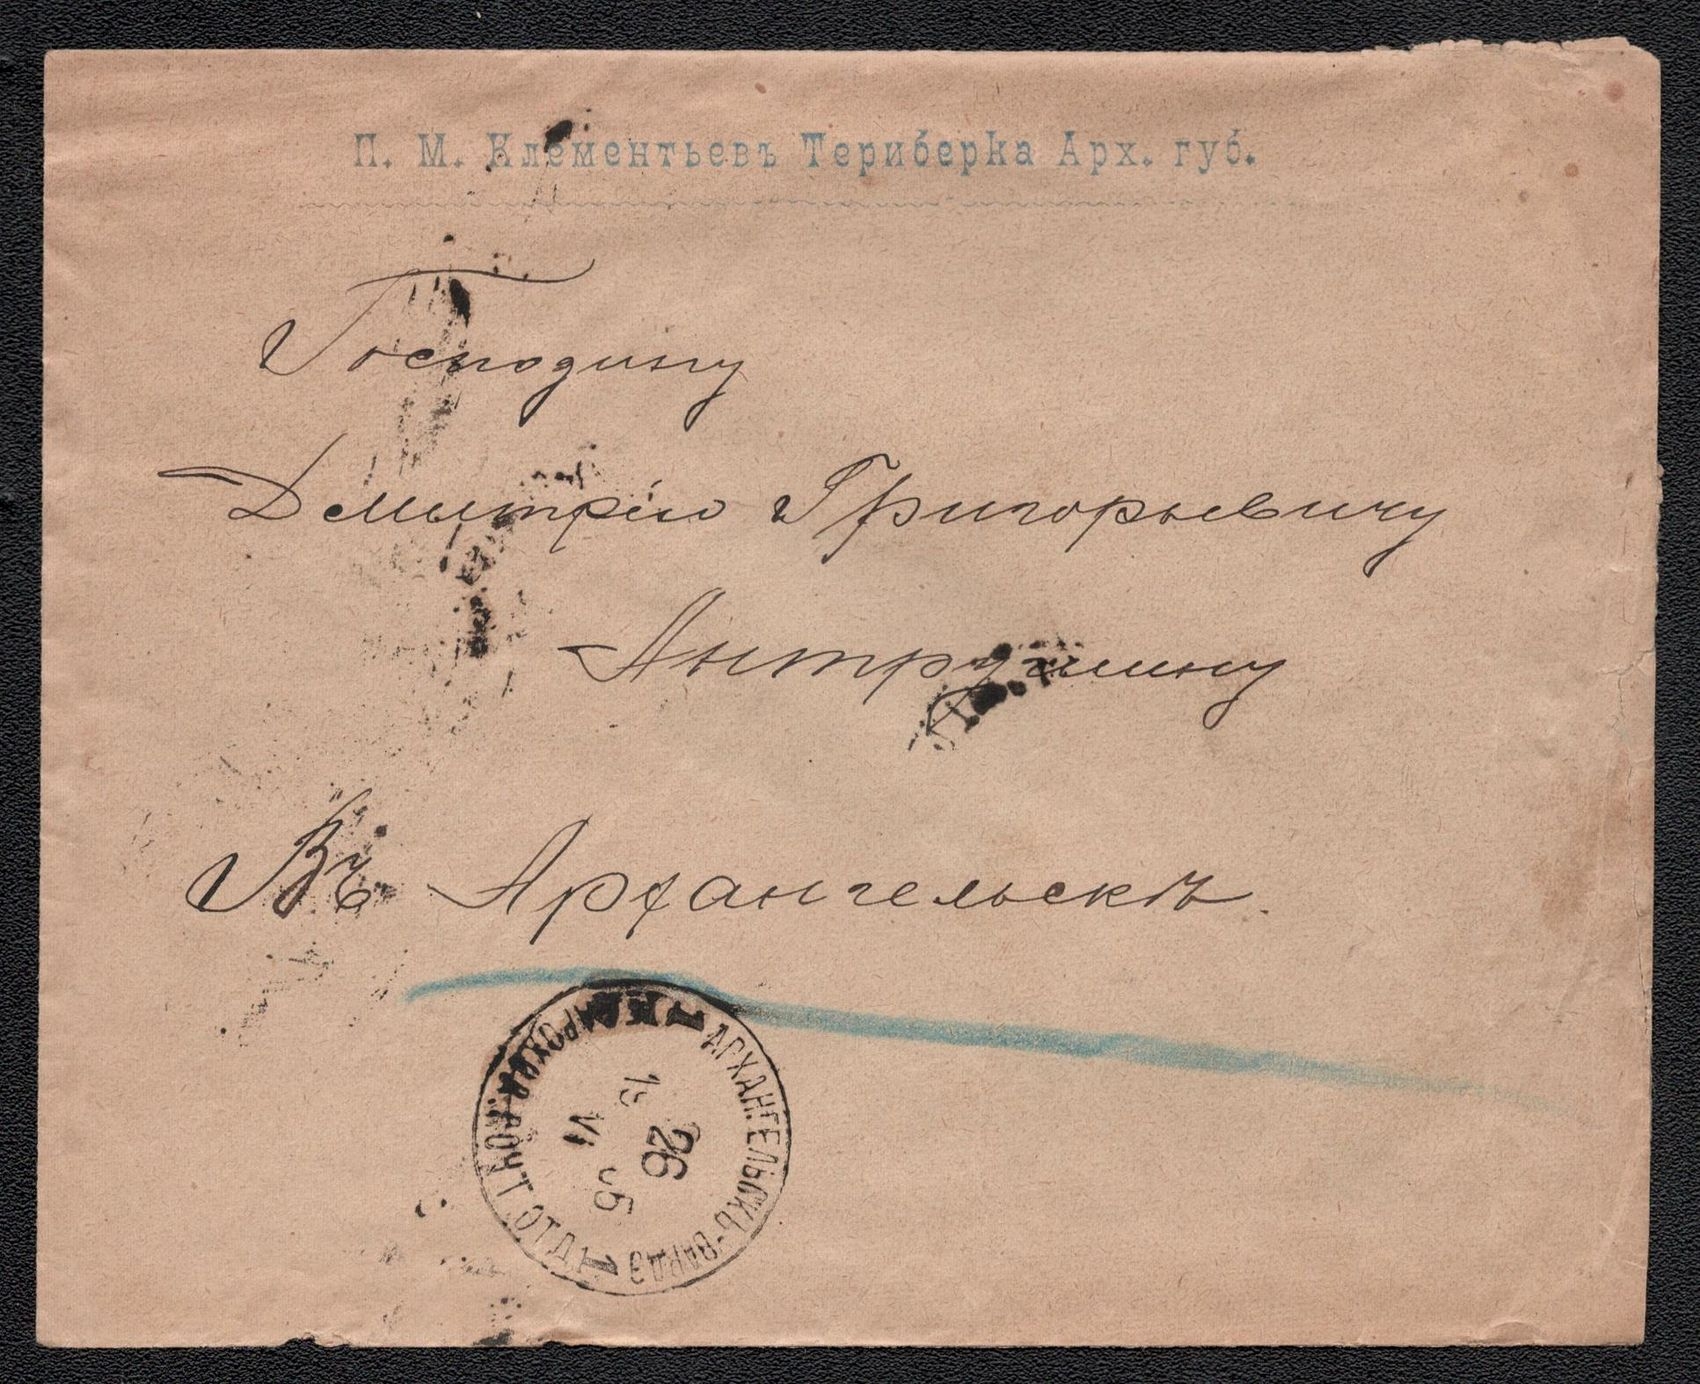 П. М. Клементьевъ Териберка Арх. губ.
Господину
Дмитрію Григорьевичу
Антрушину
Въ Архангельскѣ.
АРХАНГЕЛЬСКЪ-ВАРДЭ
ПАРОХОД. ПОЧТ. ОТД.
26
VI